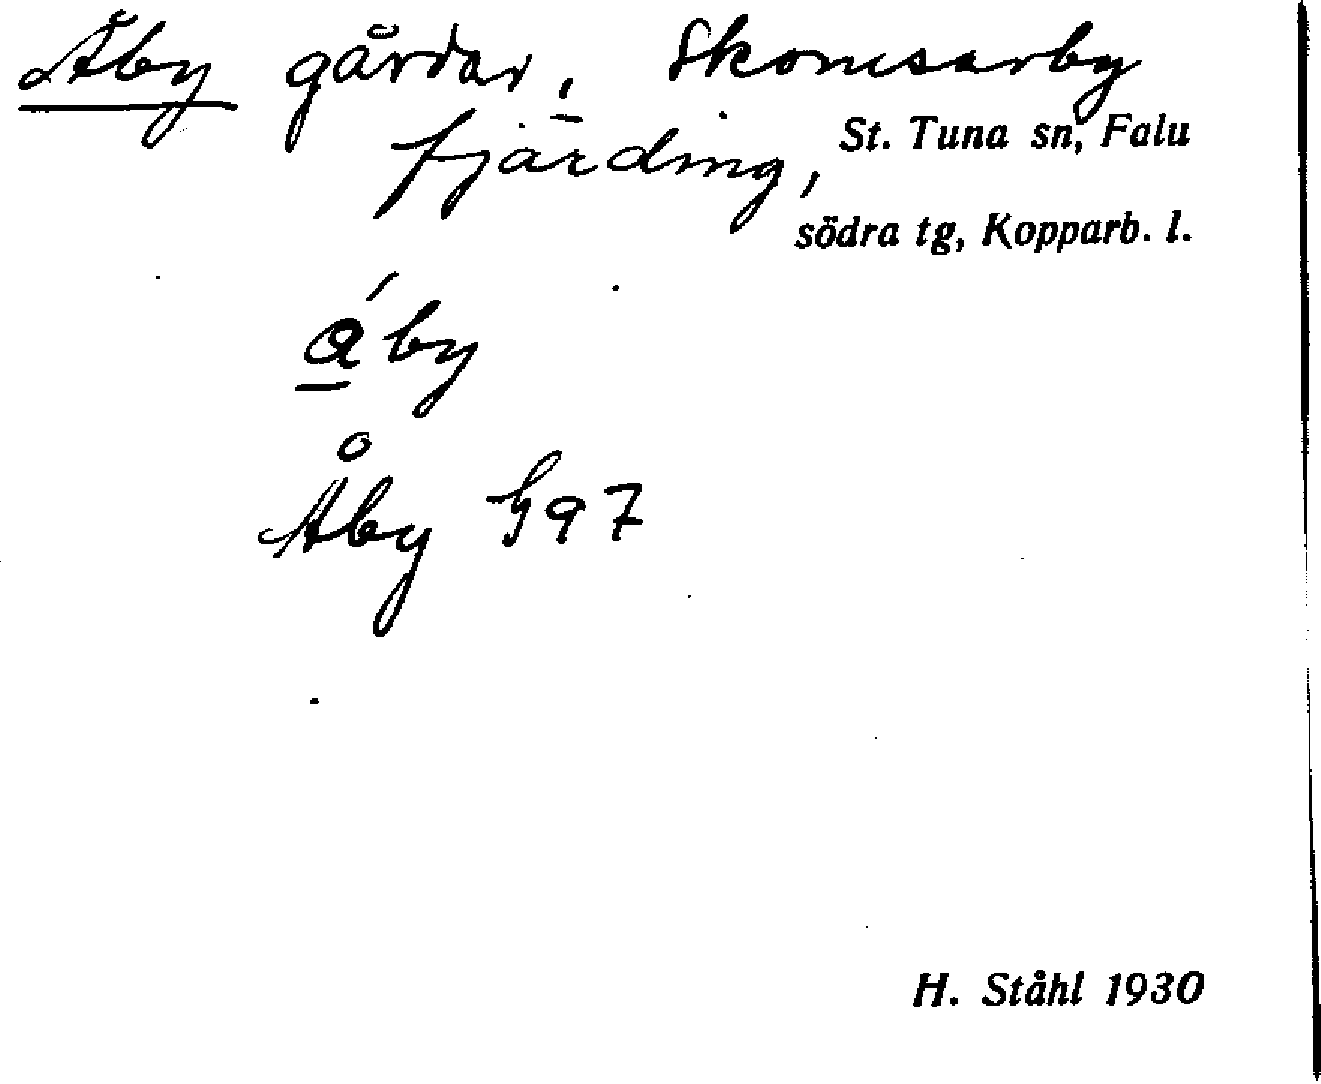 Åby gårdar, Skomsarby
fjärding, St. Tuna sn, Falu
södra tg, Kopparb. l.
áby
Åby G97
H. Ståhl 1930